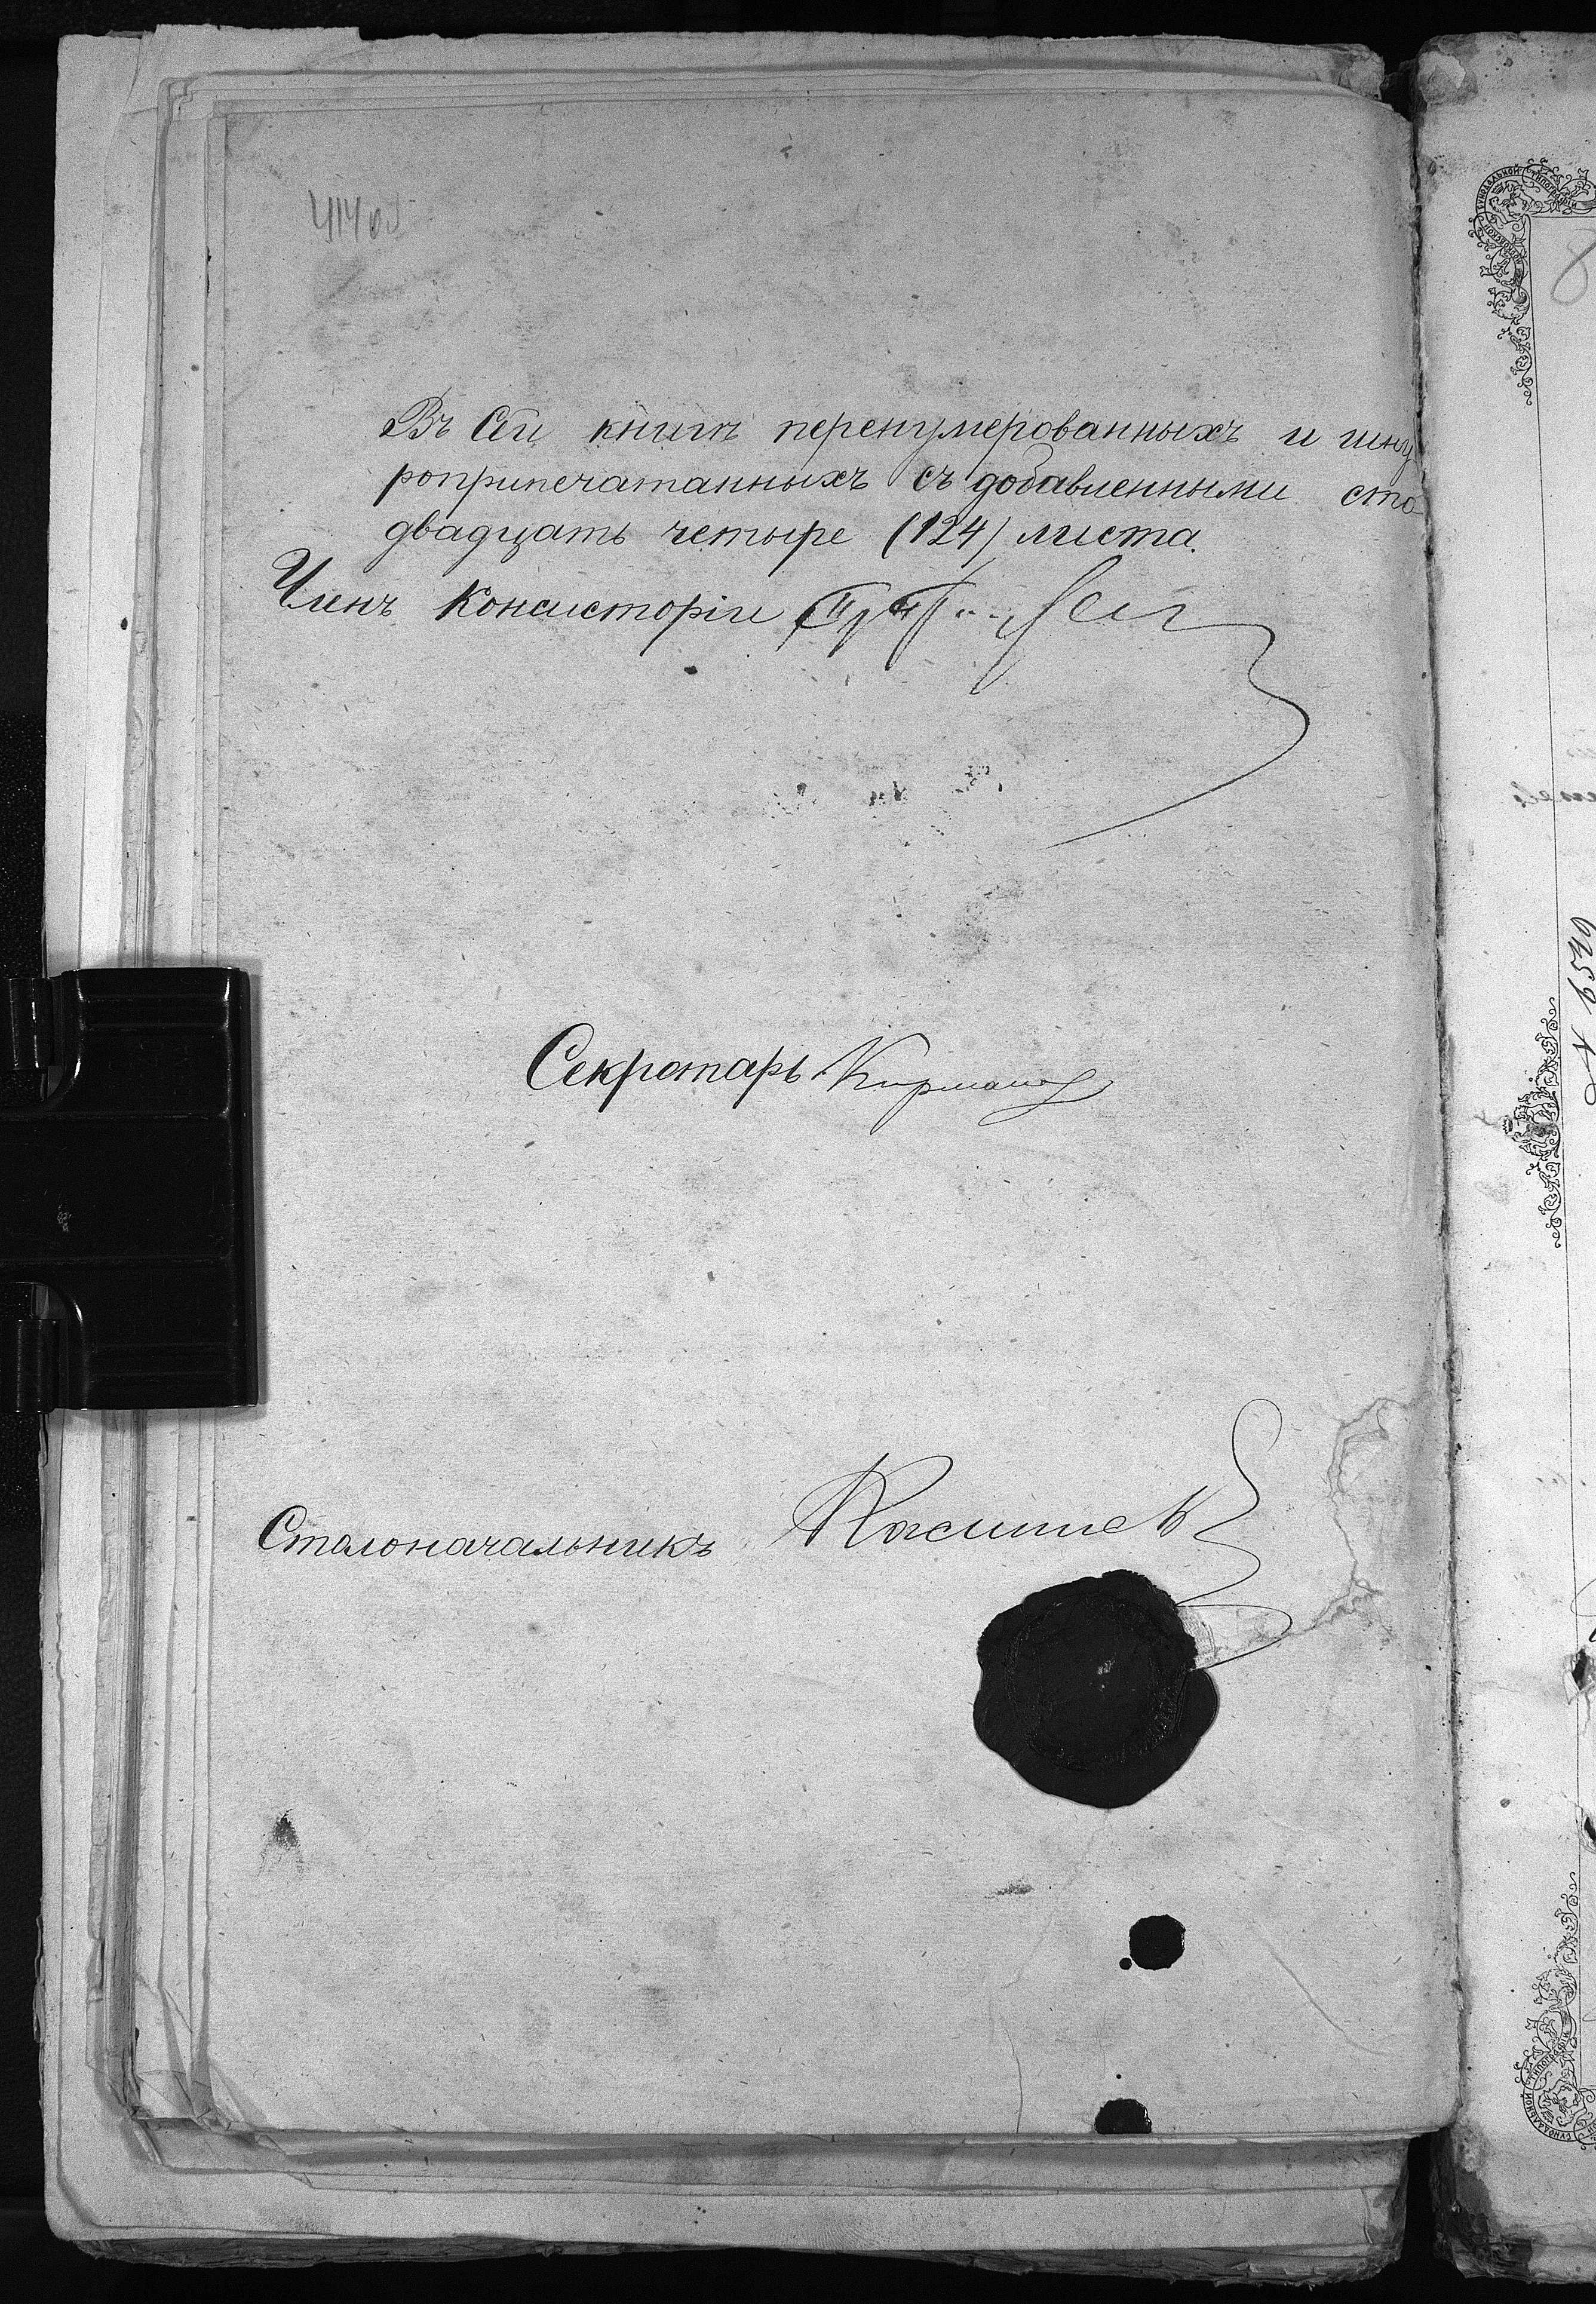 Въ сей книгѣ перенумерованныхъ и шну
роприпечатанныхъ съ добавленными сто
двадцать четыре (124) листа.
Членъ Консисторіи
Секретарь
Столоначальникъ
8
№ 6520